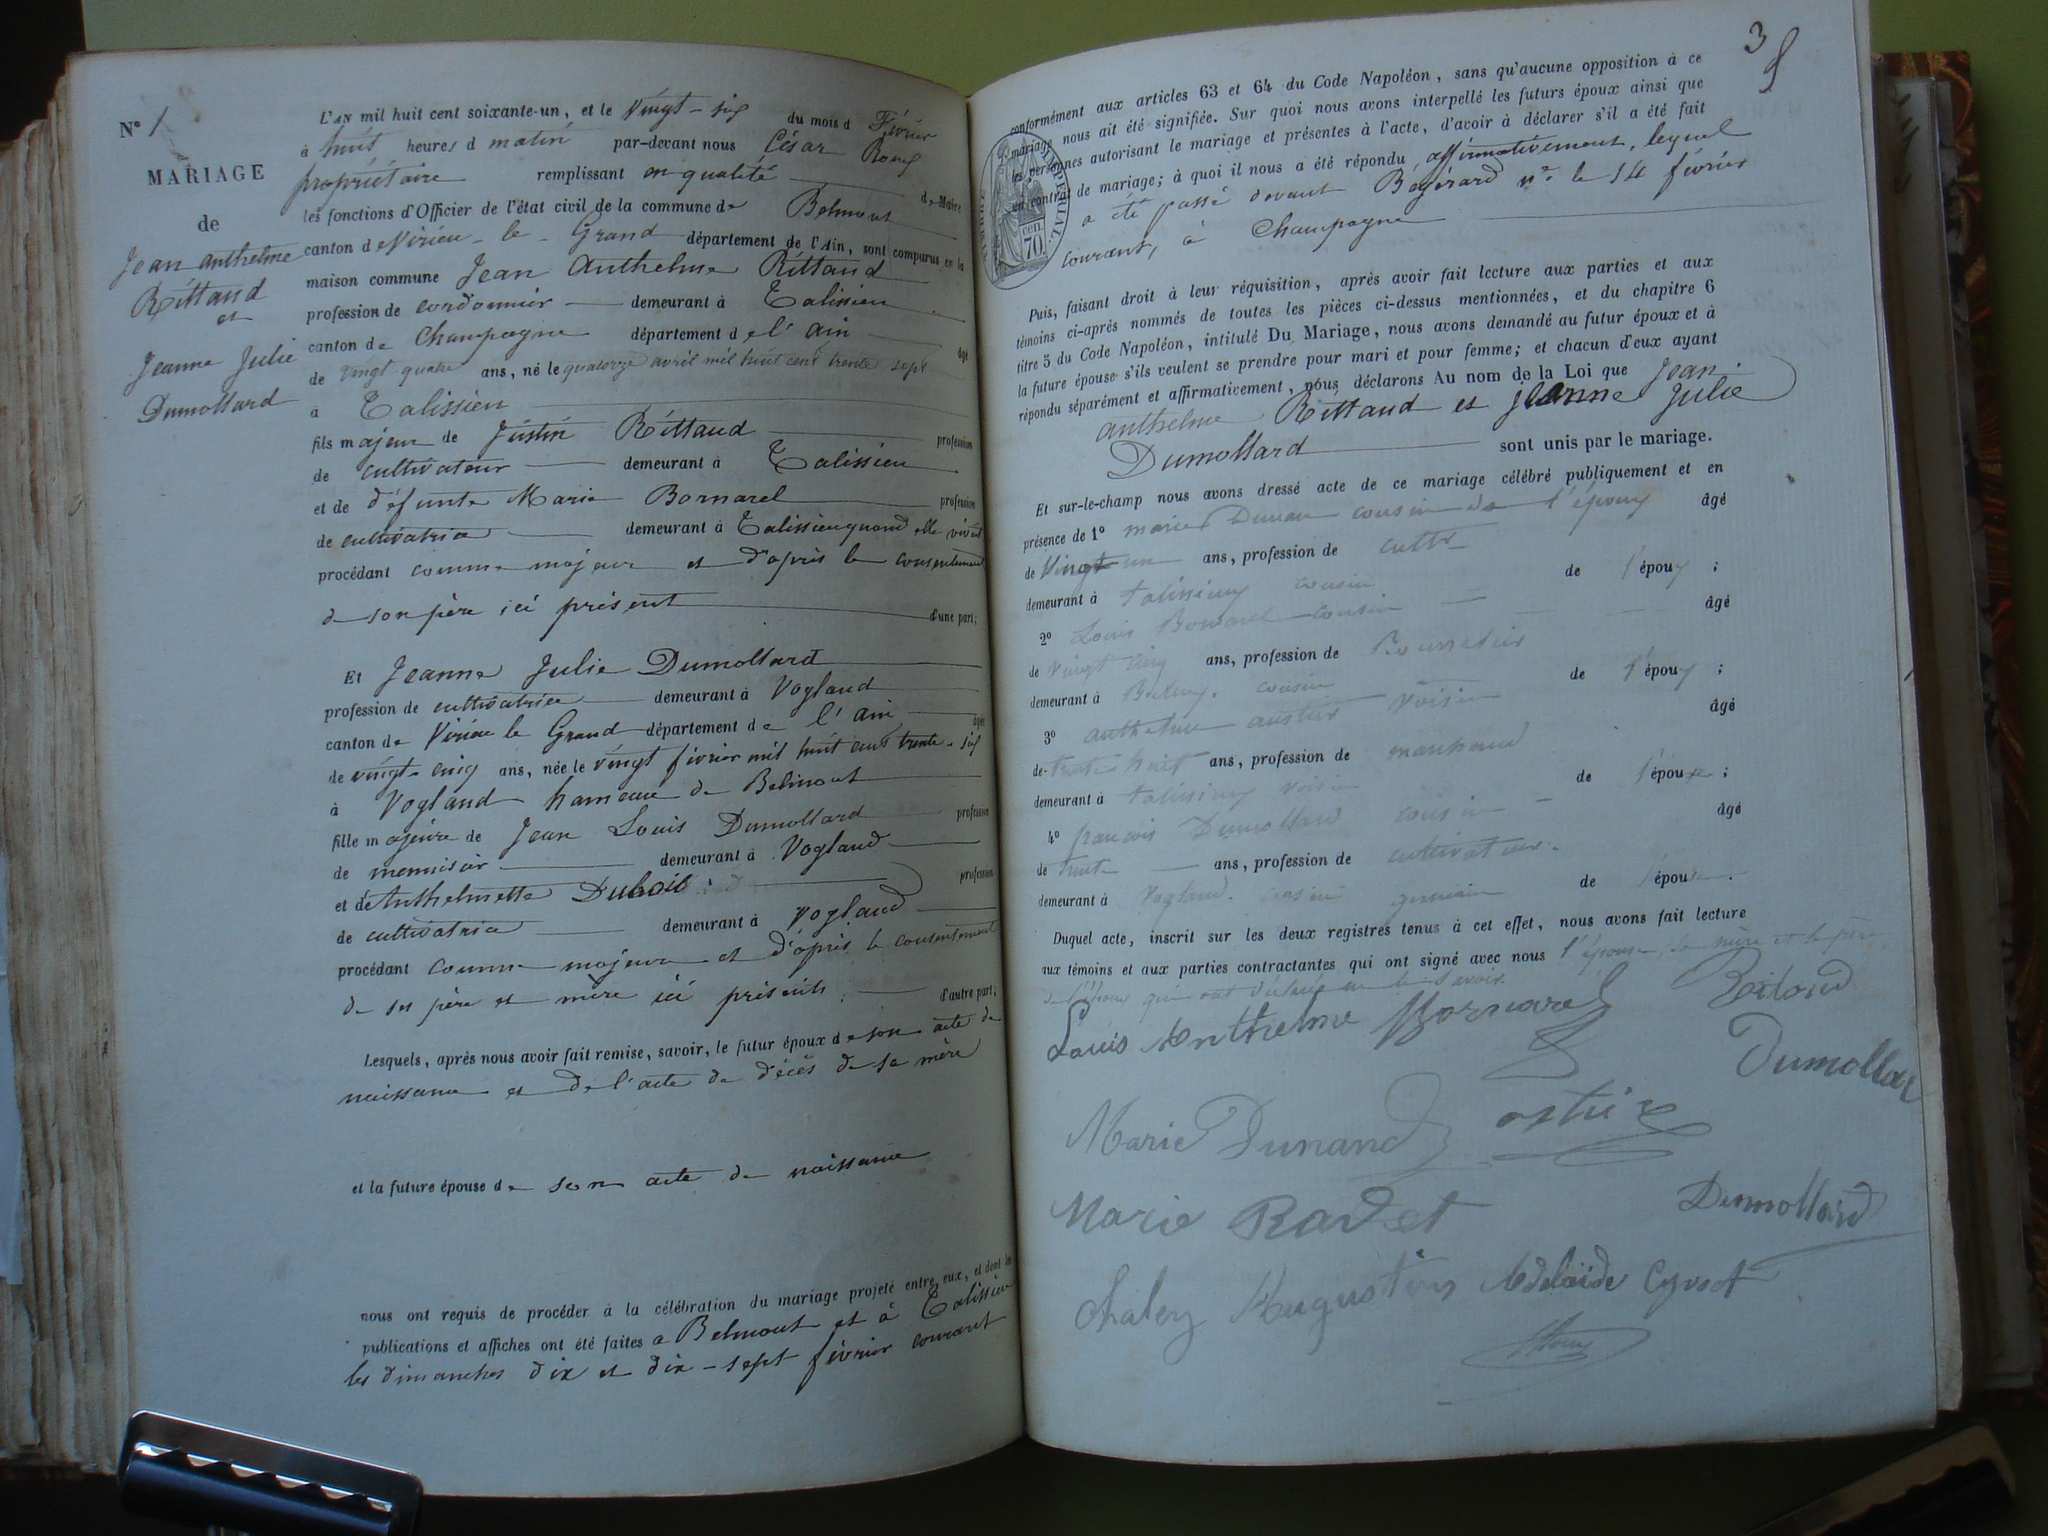 N° 1
MARIAGE
de
Jean anthelme
Rittaud
et
Jeanne Julie
Dumollard
L'AN mil huit cent soixante-un, et le vingt-six du mois d Février
à huit heures d matin par-devant nous César
propriétaire remplissant en qualité de Maire
les fonctions d'Officier de l'état civil de la commune de Belmont
canton de Virieu-le-Grand département de l'Ain, sont comparus en la
maison commune Jean Anthelme Rittaud
profession de cordonnier demeurant à Talissieu
canton de Champagne département de l'ain âgé
de vingt quatre ans, né le quatorze avril mil huit cent trente sept
à Talissieu
fils majeur de Justin Rittaud profession
de cultivateur demeurant à Talissieu
et de défunte Marie Bornarel profession
de cultivatrice demeurant à Talissieu quand elle vivait
procédant comme majeur et d'après le consentement
de son père ici présent d'une part;
Et Jeanne Julie Dumollard
profession de cultivatrice demeurant à Vogland
canton de Virieu le Grand département de l'ain âgée
de vingt-cinq ans, née le vingt février mil huit cent trente-six
à Vogland hameau de Belmont
fille majeure de Jean Louis Dumollard profession
de menuisier demeurant à Vogland
et de Anthelmette Dubois profession
de cultivatrice demeurant à Vogland
procédant comme majeure et d'après le consentement
de ses père et mère ici présents; d'autre part;
Lesquels, après nous avoir fait remise, savoir, le futur époux de son acte de
naissance et de l'acte de décès de sa mère
et la future épouse de son acte de naissance
nous ont requis de procéder à la célébration du mariage projeté entre eux, et dont les
publications et affiches ont été faites à Belmont et à Talissieu
les dimanches dix et dix-sept février courant
3
conformément aux articles 63 et 64 du Code Napoléon, sans qu'aucune opposition à ce
mariage nous ait été signifiée. Sur quoi nous avons interpellé les futurs époux ainsi que
les personnes autorisant le mariage et présentes à l'acte, d'avoir à déclarer s'il a été fait
un contrat de mariage; à quoi il nous a été répondu affirmativement, lequel
a été passé devant n.re le 14 février
courant, à Champagne
IMPERIAL
70 cen
Puis, faisant droit à leur réquisition, après avoir fait lecture aux parties et aux
témoins ci-après nommés de toutes les pièces ci-dessus mentionnées, et du chapitre 6
titre 5 du Code Napoléon, intitulé Du Mariage, nous avons demandé au futur époux et à
la future épouse s'ils veulent se prendre pour mari et pour femme; et chacun d'eux ayant
répondu séparément et affirmativement, nous déclarons Au nom de la Loi que Jean
anthelme Rittaud et Jeanne Julie
Dumollard sont unis par le mariage.
Et sur-le-champ nous avons dressé acte de ce mariage célébré publiquement et en
présence de 1° marie Dunan cousin de l'époux âgé
de vingt un ans, profession de cultr
demeurant à talissieux cousin de l'époux;
2° Louis Bornarel cousin âgé
de vingt cinq ans, profession de
demeurant à cousin de l'époux;
3° anthelme voisin âgé
de trente huit ans, profession de marchand
demeurant à talissieux voisin de l'époux;
4° françois Dumollard cousin âgé
de trente ans, profession de cultivateur.
demeurant à Vogland. cousin germain de l'épouse.
Duquel acte, inscrit sur les deux registres tenus à cet effet, nous avons fait lecture
aux témoins et aux parties contractantes qui ont signé avec nous l'épouse, sa mère et le père
de l'époux qui ont déclaré ne le savoir.
Louis Anthelme Bornarel Ritaud
Dumollar
Marie Dunand ostier
Marie Ravet Dumollard
Chaley Augustine Adelaïde Cyvoct